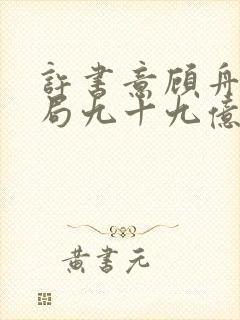 許書意顾舟
局九十九億
黄書元